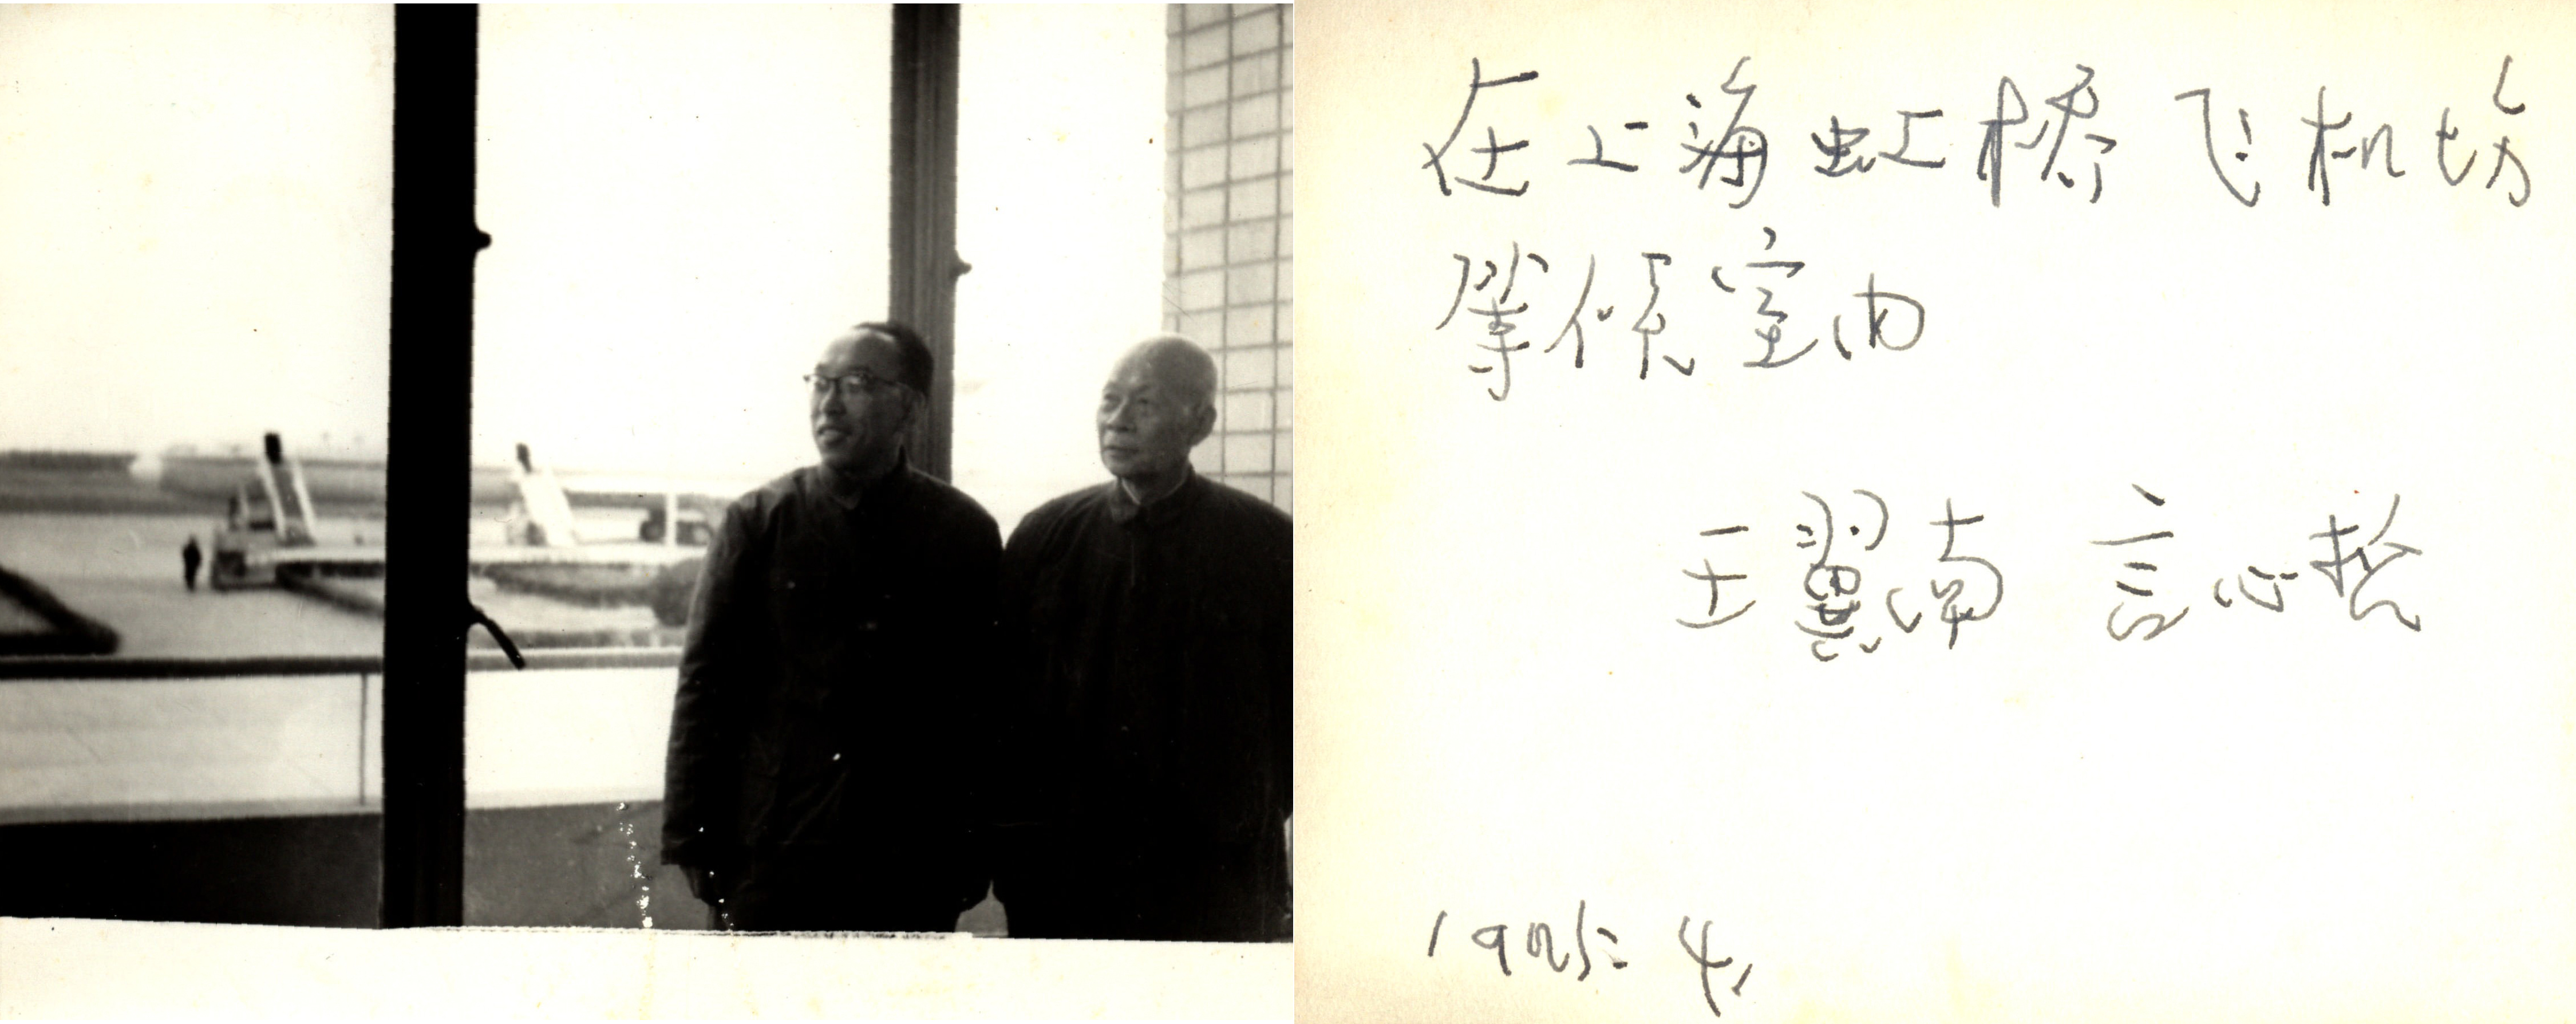 在上海虹桥飞机场
等候室内
王翼南 言心哲